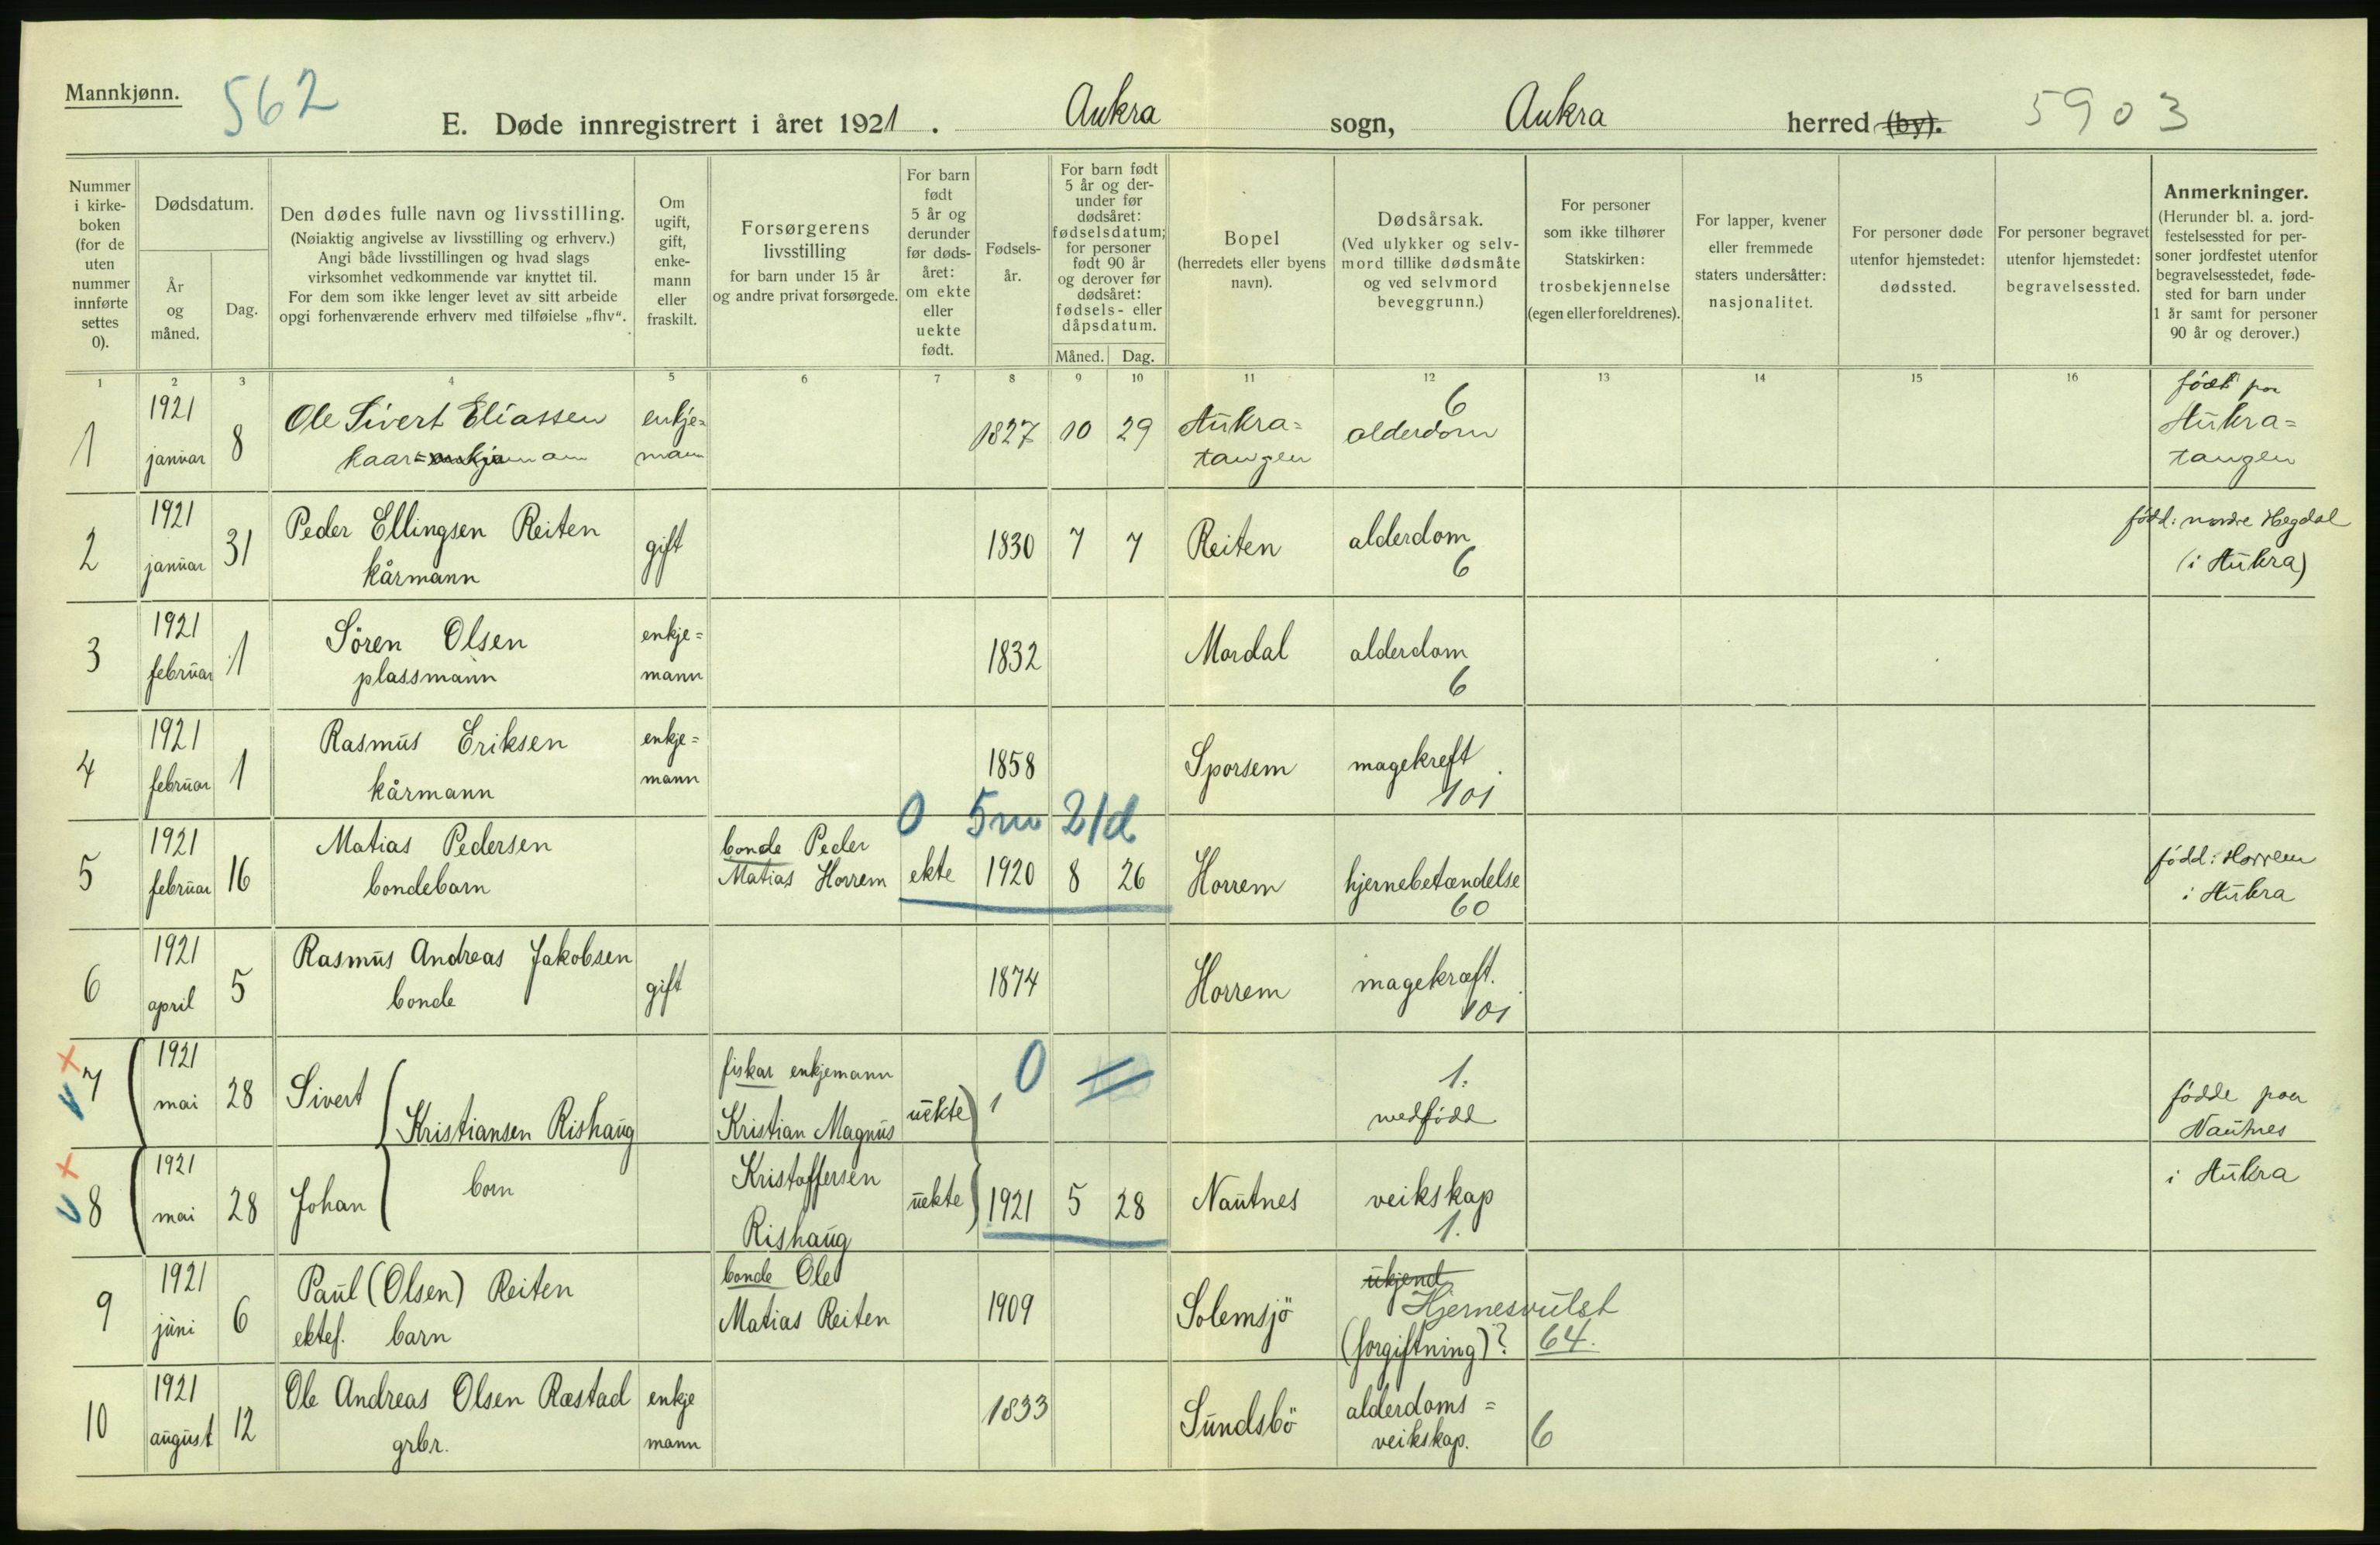 Mannkjønn.
562
E. Døde innregistrert i året 1921. Aukra sogn, Aukra herred (by). 5903
Nummer i kirke- boken (for de uten nummer innførte settes 0).
Dødsdatum.
År og måned.
Dag.
Den dødes fulle navn og livsstilling.
(Nøiaktig angivelse av livsstilling og erhverv.)
Angi både livsstillingen og hvad slags
virksomhet vedkommende var knyttet til.
For dem som ikke lenger levet av sitt arbeide
opgi forhenværende erhverv med tilføielse „fhv“.
Om ugift, gift, enke- mann eller fraskilt.
Forsørgerens
livsstilling
for barn under 15 år
og andre privat forsørgede.
For barn født 5 år og derunder før døds- året: om ekte eller uekte født.
Fødsels- år.
For barn født 5 år og der- under før dødsåret: fødselsdatum; for personer født 90 år og derover før dødsåret: fødsels- eller dåpsdatum.
Måned. Dag.
Bopel
(herredets eller byens
navn).
Dødsårsak.
(Ved ulykker og selv-
mord tillike dødsmåte
og ved selvmord
beveggrunn.)
For personer
som ikke tilhører
Statskirken:
trosbekjennelse
(egen eller foreldrenes).
For lapper, kvener
eller fremmede
staters undersåtter:
nasjonalitet.
For personer døde
utenfor hjemstedet:
dødssted.
For personer begravet
utenfor hjemstedet:
begravelsessted.
Anmerkninger.
(Herunder bl. a. jord-
festelsessted for per-
soner jordfestet utenfor
begravelsesstedet, føde-
sted for barn under
1 år samt for personer
90 år og derover.)
1 2 3 4 5 6 7 8 9 10 11 12 13 14 15 16
1 1921 januar 8 Ole Sivert Eliassen kaar= enkje= mann 1827 10 29 Aukra= tangen 6 alderdom født paa Aukra= tangen
2 1921 januar 31 Peder Ellingsen Reiten kårmann gift 1830 7 7 Reiten alderdom 6 född: nordre Hegdal (i Aukra)
3 1921 februar 1 Sören Olsen plassmann enkje= mann 1832 Mordal alderdom 6
4 1921 februar 1 Rasmus Eriksen kårmann enkje= mann 1858 Sporsem magekreft 101
0 5m 21d
5 1921 februar 16 Matias Pedersen bondebarn bonde Peder Matias Horrem ekte 1920 8 26 Horrem hjernebetændelse 60 född: Horrem i Aukra
6 1921 april 5 Rasmus Andreas Jakobsen bonde gift 1874 Horrem magekræft. 101
7 1921 mai 28 Sivert Kristiansen Rishaug fiskar enkjemann Kristian Magnus uekte 1 0 1. medfödd födde paa Nautnes
8 1921 mai 28 Johan born Kristoffersen Rishaug uekte 1921 5 28 Nautnes veikskap 1. i Aukra
9 1921 juni 6 Paul (Olsen) Reiten ektef. barn bonde Ole Matias Reiten 1909 Solemsjö ukjend Hjernesvulst (forgiftning)? 64.
10 1921 august 12 Ole Andreas Olsen Ræstad grbr. enkje mann 1833 Sundsbö alderdoms= veikskap. 6